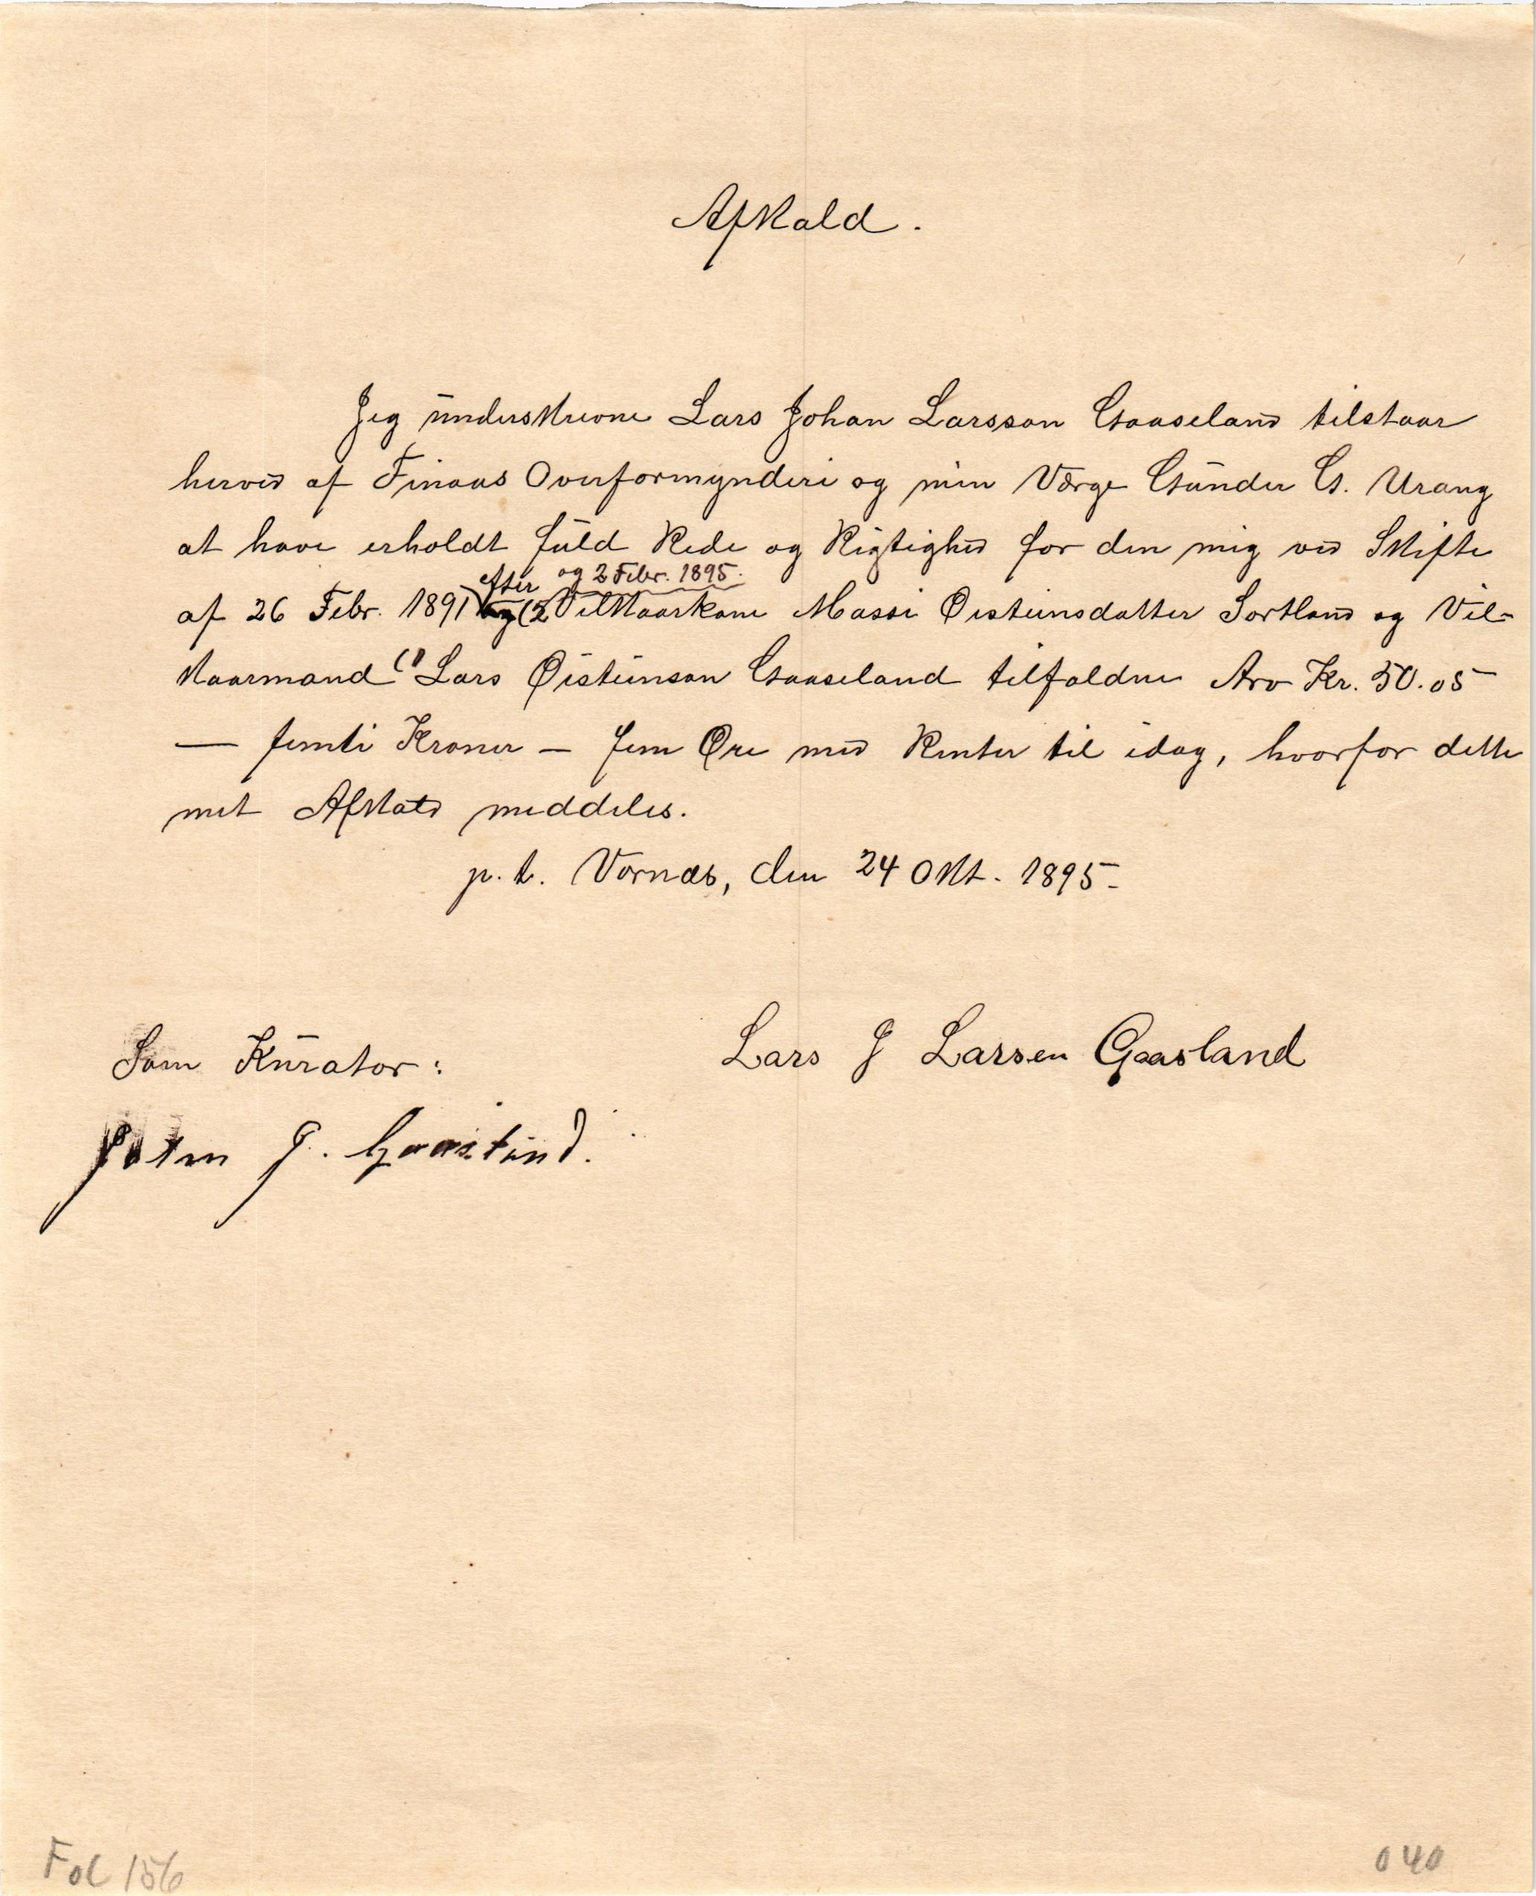 Afkald.
Jeg underskrevne Lars Johan Larsson Gaaseland tilstaar
herved af Finaas Overformynderi og min Værge Gunder G. Urang
at have erholdt fuld Rede og Rigtighed for den mig ved Skifte
efter og 2 Febr. 1895.
af 26 Febr. 1891 og (2 Vilkaarkone Massi Øisteinsdatter Sortland og Vil-
kaarmand (1 Lars Øisteinson Gaaseland tilfaldne Arv Kr. 50.05
— femti Kroner — fem Øre med Renter til idag, hvorfor dette
mit Afkald meddeles.
p. t. Vornæs, den 24 Okt. 1895.
Som Kurator:
Lars J Larsen Gaasland
J.
Fol 156
040